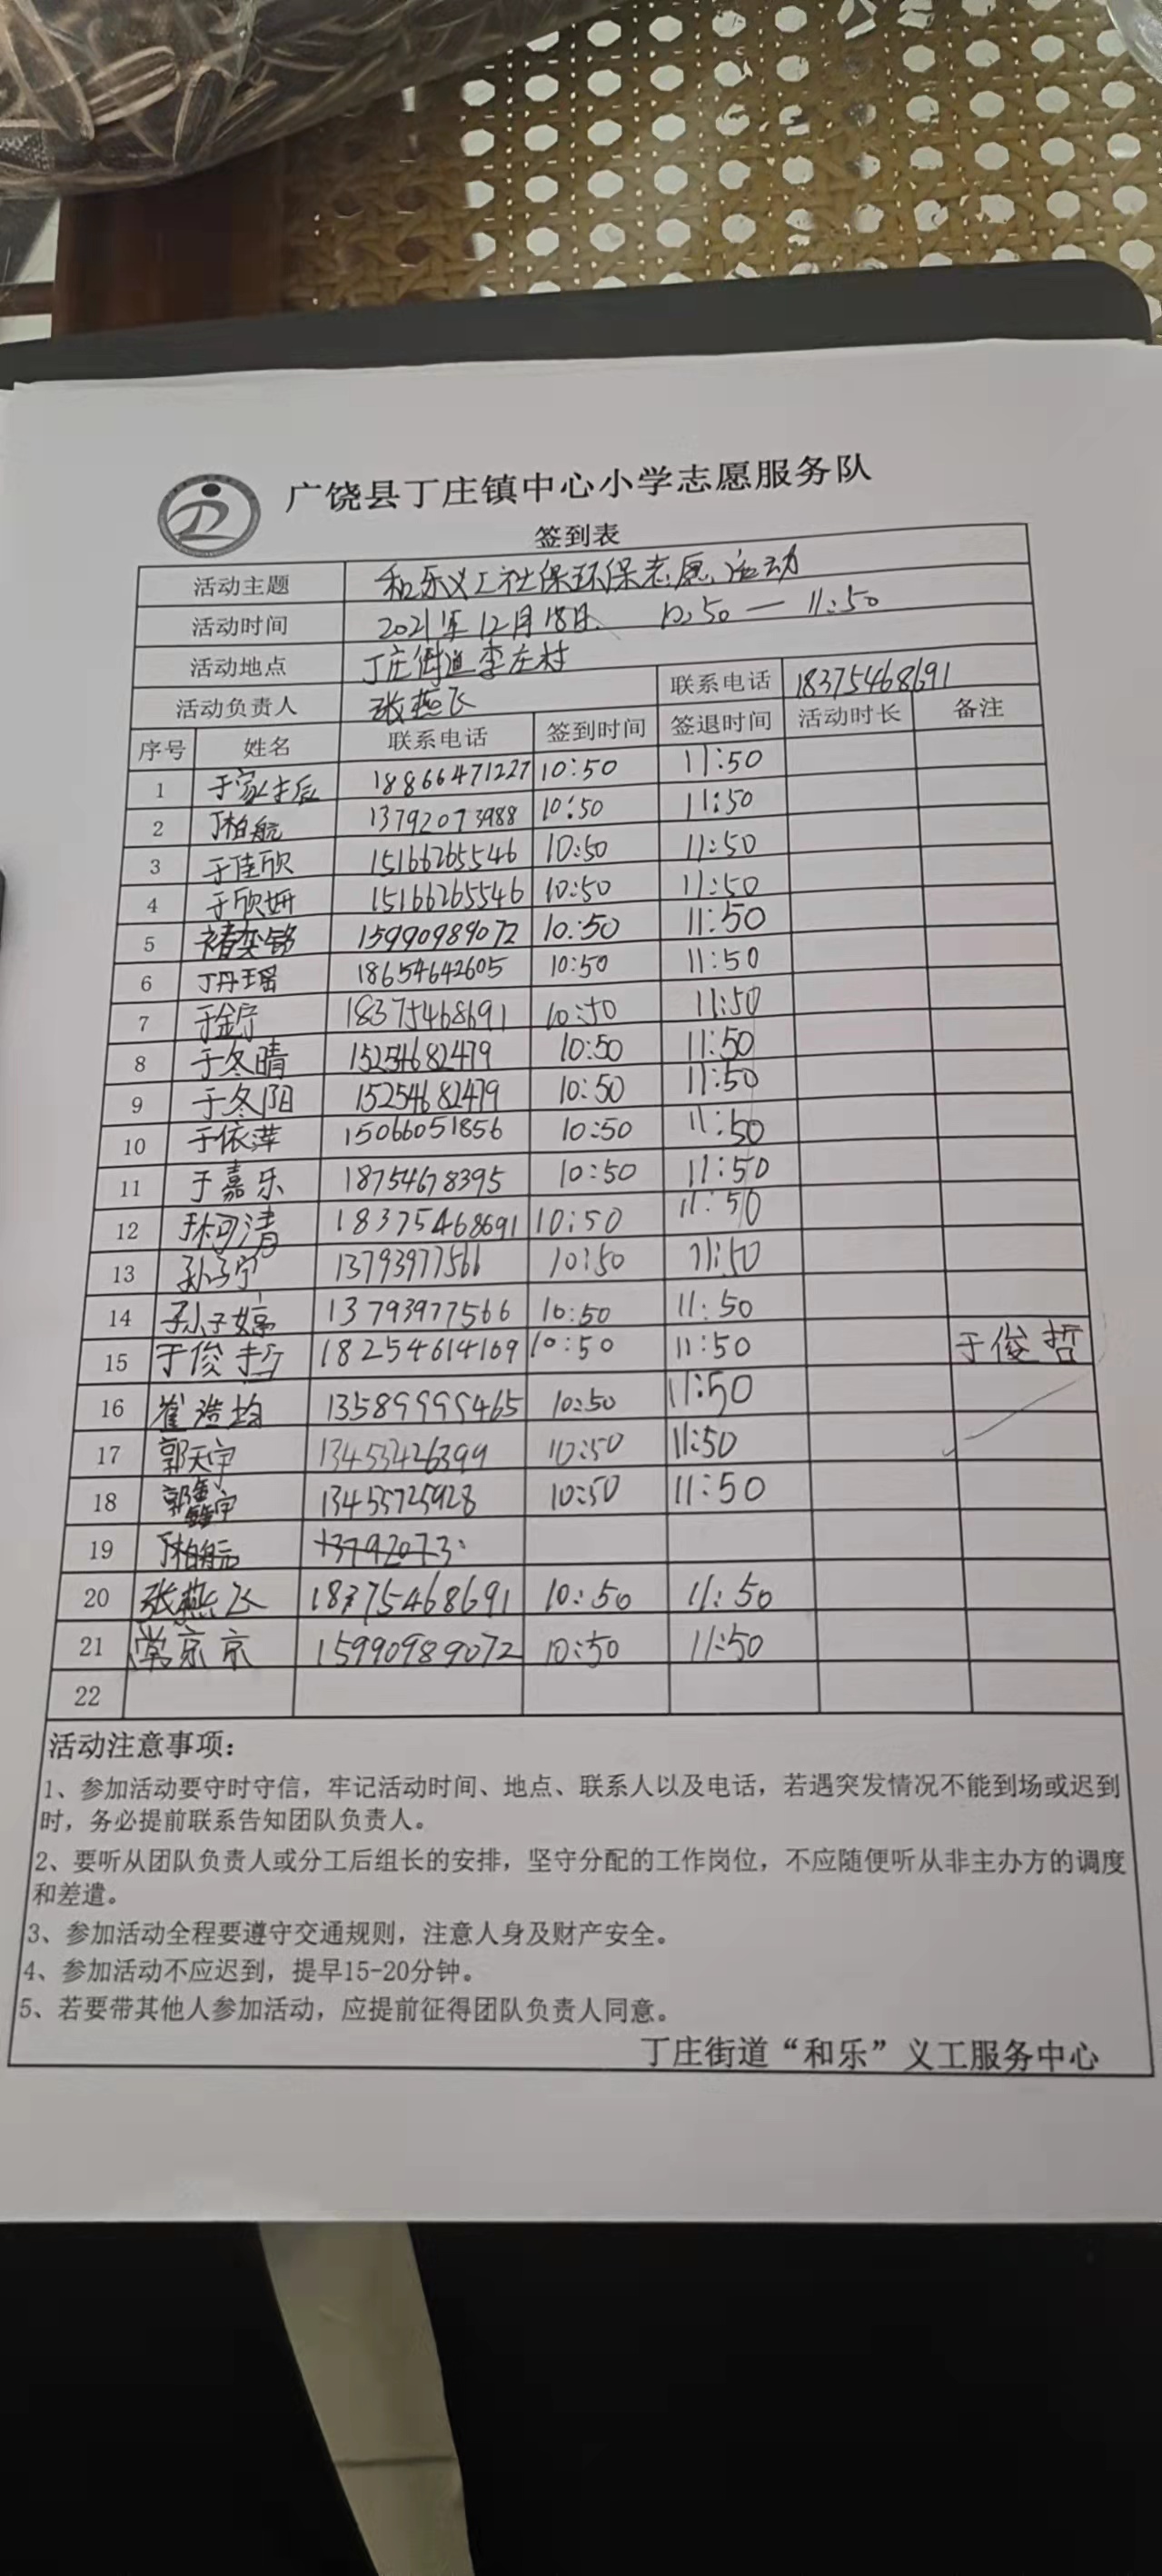 广饶县丁庄镇中心小学志愿服务队
签到表
活动主题 和乐义工社保环保志愿活动
活动时间 2021年12月18日 10:50 — 11:50
活动地点 丁庄街道李左村
活动负责人 张燕飞 联系电话 18375468691
序号 姓名 联系电话 签到时间 签退时间 活动时长 备注
1 18866471227 10:50 11:50
2 丁柏航 13792073988 10:50 11:50
3 于佳欣 15166265546 10:50 11:50
4 于欣妍 15166265546 10:50 11:50
5 褚奕铭 15990989072 10:50 11:50
6 丁丹瑶 18654642605 10:50 11:50
7 于金宁 18375468691 10:50 11:50
8 于冬晴 15254682479 10:50 11:50
9 于冬阳 15254682479 10:50 11:50
10 于依萍 15066051856 10:50 11:50
11 于嘉乐 18754678395 10:50 11:50
12 孙可清 18375468691 10:50 11:50
13 孙子宁 13793977566 10:50 11:50
14 孙子婷 13793977566 10:50 11:50
15 于俊哲 18254614169 10:50 11:50 于俊哲
16 崔浩均 13589999465 10:50 11:50
17 郭天宇 13453426399 10:50 11:50
18 郭鑫宇 13455725928 10:50 11:50
19 丁柏航 13792073
20 张燕飞 18375468691 10:50 11:50
21 常京京 15990989072 10:50 11:50
22
活动注意事项：
1、参加活动要守时守信，牢记活动时间、地点、联系人以及电话，若遇突发情况不能到场或迟到
时，务必提前联系告知团队负责人。
2、要听从团队负责人或分工后组长的安排，坚守分配的工作岗位，不应随便听从非主办方的调度
和差遣。
3、参加活动全程要遵守交通规则，注意人身及财产安全。
4、参加活动不应迟到，提早15-20分钟。
5、若要带其他人参加活动，应提前征得团队负责人同意。
丁庄街道“和乐”义工服务中心